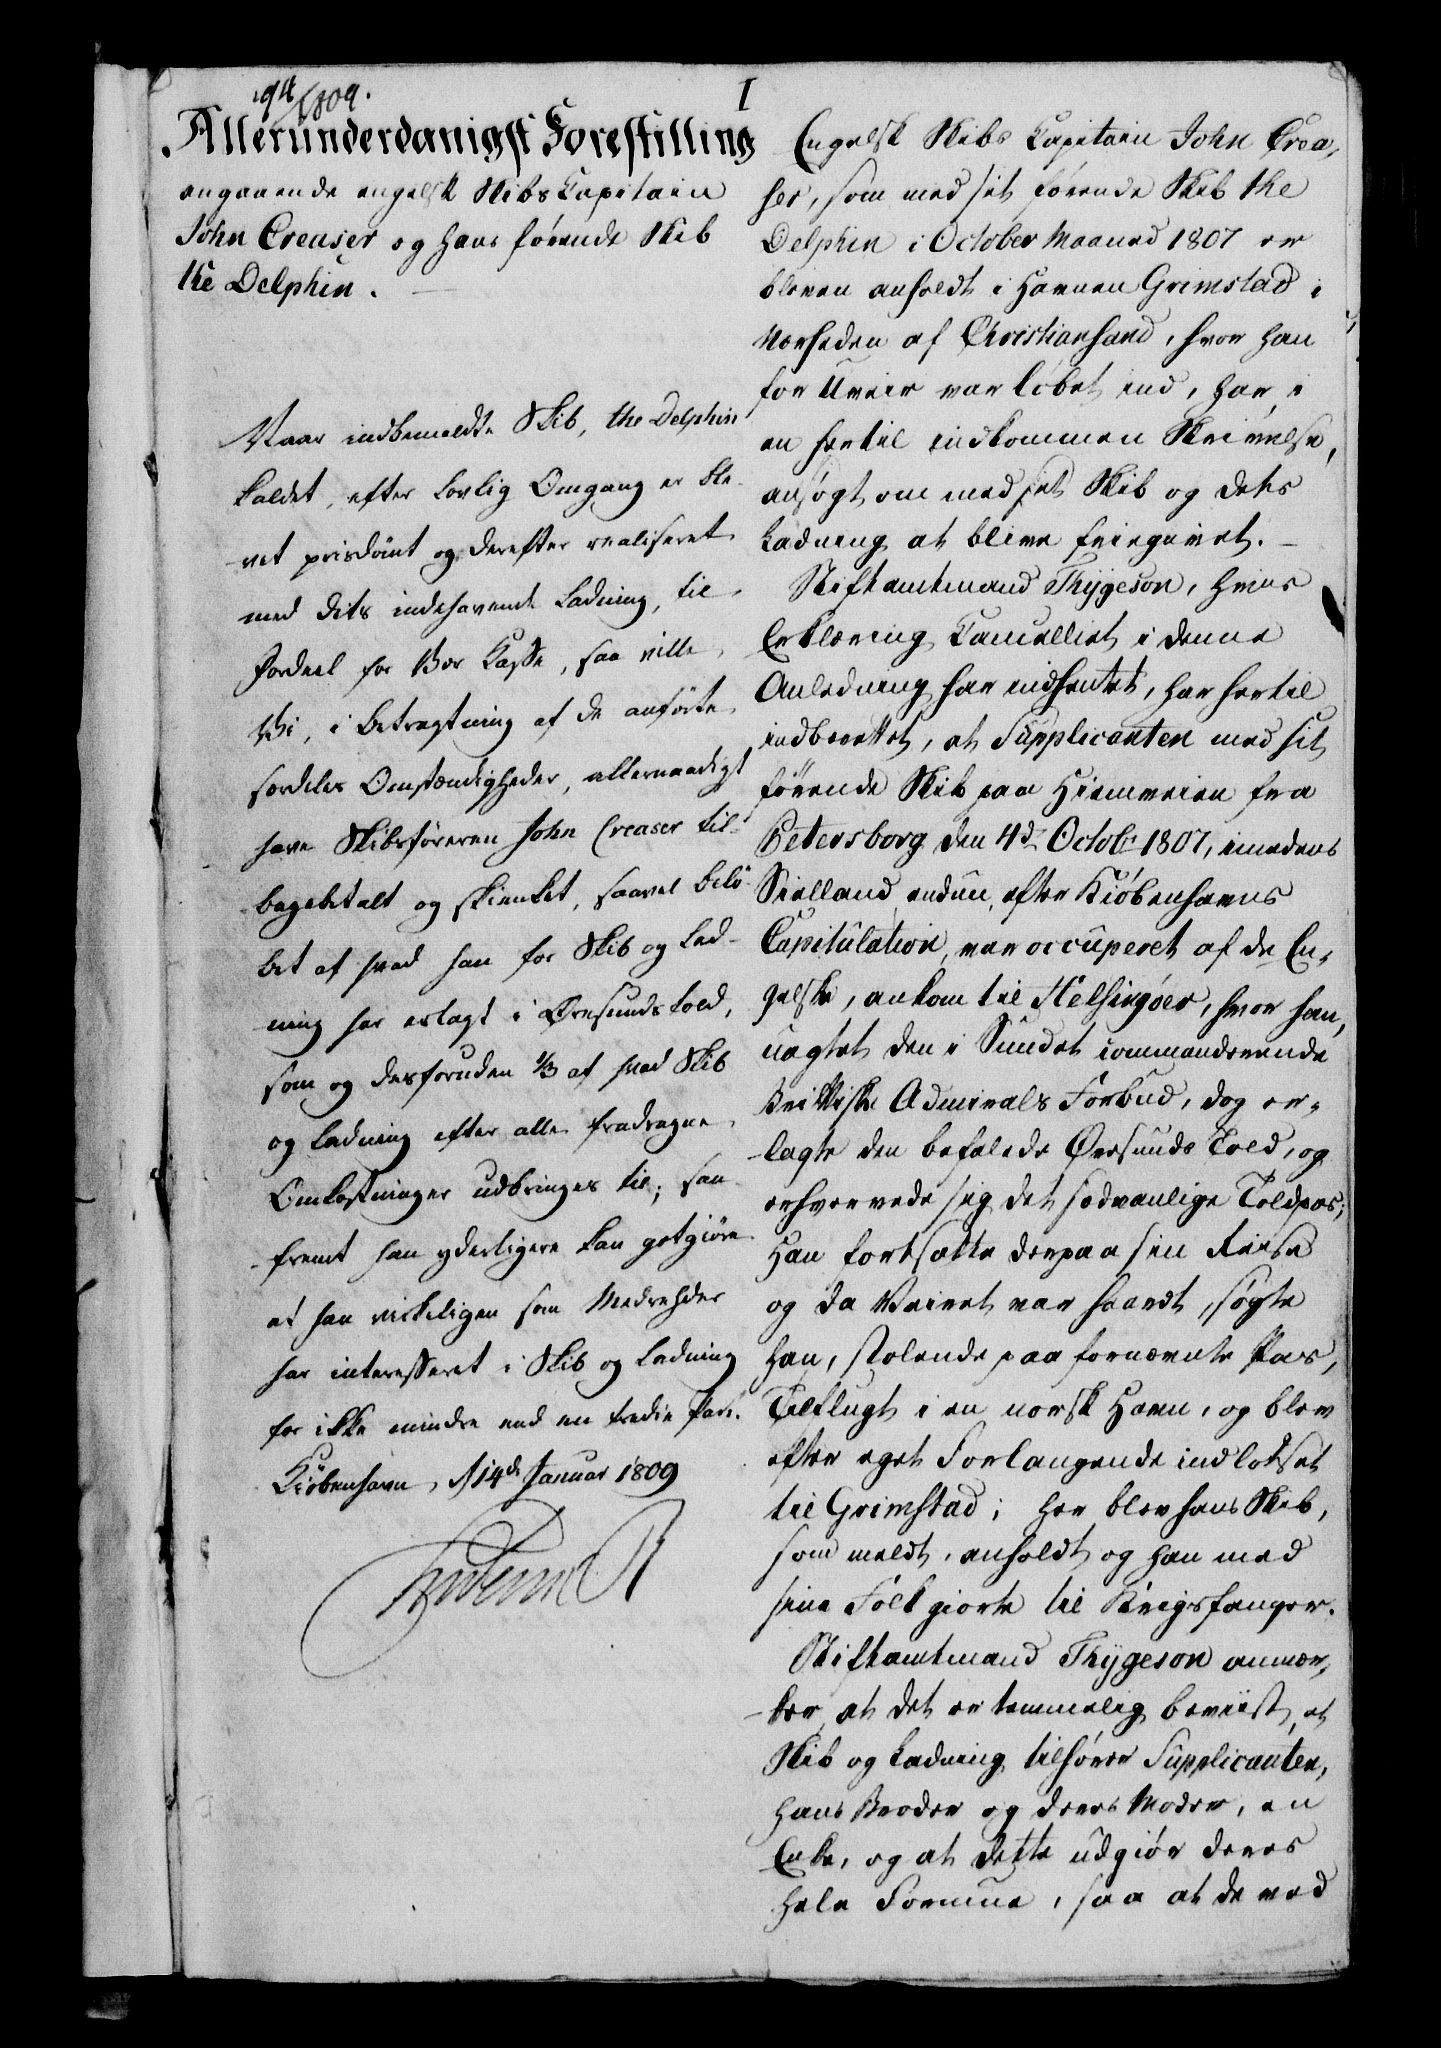 194/1809.
I
Allerunderdanigst Forestilling
angaaende engelsk Skibs Capitain
John Creaser og hans förende Skib
the Delphin.
Naar indbemeldte Skib, the Delphin
kaldet, efter lovlig Omgang er ble-
vet prisdömt og derefter realiseret
med dets indehavende Ladning, til
Fordeel for Vor Kasse, saa ville
Vi, i Betragtning af de anförte
særdeles Omstændigheder, allernaadigst
have Skibsföreren John Creaser til-
bagebetalt og skienket, saavel belö-
bet af hvad han for Skib og Lad-
ning har erlagt i Øresunds Told,
som og desforuden 1/3 af hvad Skib
og Ladning efter alle fradragne
Omkostninger udbringes til; saa-
fremt han yderligere kan godtgiöre
at han virkeligen som Medrehder
har interesseret i Skib og Ladning
for ikke mindre end en tredie Part.
Kiöbenhavn, d 14de Januar 1809
Frederik R
Engelsk Skibs Capitain John Crea,
ser, som med sit förende Skib the
Delphin i October Maaned 1807 er
bleven anholdt i Havnen Grimstad i
Nærheden af Christiansand, hvor han
for Uveir var löbet ind, har, i
en hertil indkommen Skrivelse,
ansögt om med sit Skib og dets
Ladning at blive frigivet. —
Stiftamtmand Thÿgeson, hvis
Erklæring Cancelliet i denne
Anledning har indhentet, har hertil
indberettet, at Supplicanten med sit
förende Skib paa Hiemveien fra
Petersborg den 4de Octobr 1807, imedens
Sielland endnu, efter Kiöbenhavns
Capitulation, var occuperet af de En-
gelske, ankom til Helsingöer, hvor han,
uagtet den i Sundet commanderende
Brittiske Admirals Forbud, dog er-
lagte den befalede Øresunds Told, og
erhvervede sig det sædvanlige Toldpas;
Han fortsatte derpaa sin Reise
og da Veiret var haardt, sögte
han, stolende paa fornævnte Pas,
Tilflugt i en norsk Havn, og blev
efter eget Forlangende indlodset
til Grimstad; her blev hans Skib,
som meldt, anholdt og han med
sine Folk giorte til Krigsfanger.
Stiftamtmand Thÿgeson anmær-
ker, at det er temmelig beviist, at
Skib og Ladning tilhörer Supplicanten,
hans Broder og deres Moder, en
Enke, og at dette udgiör deres
hele Formue, saa at de ved